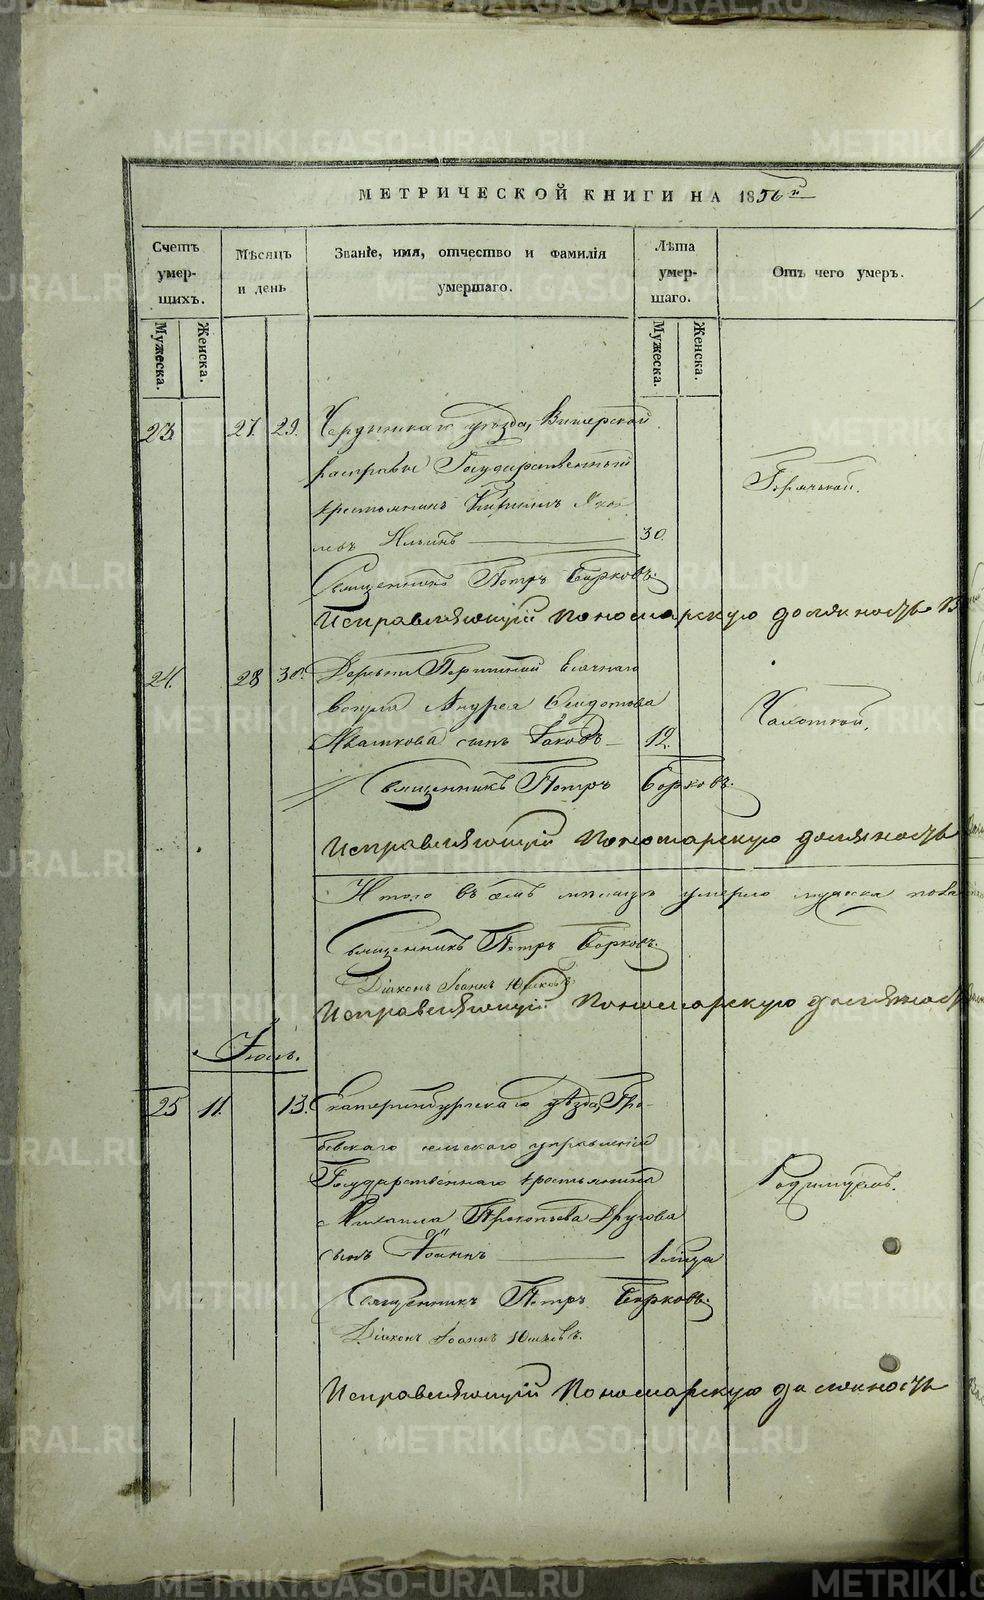 МЕТРИЧЕСКОЙ КНИГИ НА 1856й
Счетъ умер-шихъ.
Мѣсяцъ и день
Званіе, имя, отчество и фамилія умершаго.
Лѣта умер-шаго.
Отъ чего умеръ.
Мужеска.
Женска.
Мужеска.
Женска.
23. 27. 29. Чердынскаго уѣзда, Вишерской
расправы Государственный
Горячькой.
крестьянинъ Яков-
левъ Ильинъ 30.
Священникъ Петръ Борковъ.
Исправляющій Пономарскую должность В
24. 28 30.
Андрея Федотова
сынъ Іаковъ 12.
Чахоткой.
Священникъ Петръ Борковъ.
Исправляющій Пономарскую должность
Итого въ семъ мѣсяцѣ умерло мужеска пола
Священникъ Петръ Борковъ.
Діаконъ Іоаннъ Юшковъ.
Исправляющій Пономарскую должность
Іюль.
25 11. 13. Екатеринбургскаго уѣзда, Гро-
бовскаго сельскаго управленія
Государственнаго крестьянина
Михаила Прокопьева Другова
Родимцемъ.
сынъ Іоаннъ 1 мѣсяца
Священникъ Петръ Борковъ.
Діаконъ Іоаннъ Юшковъ.
Исправляющій Пономарскую должность
METRIKI.GASO-URAL.RU